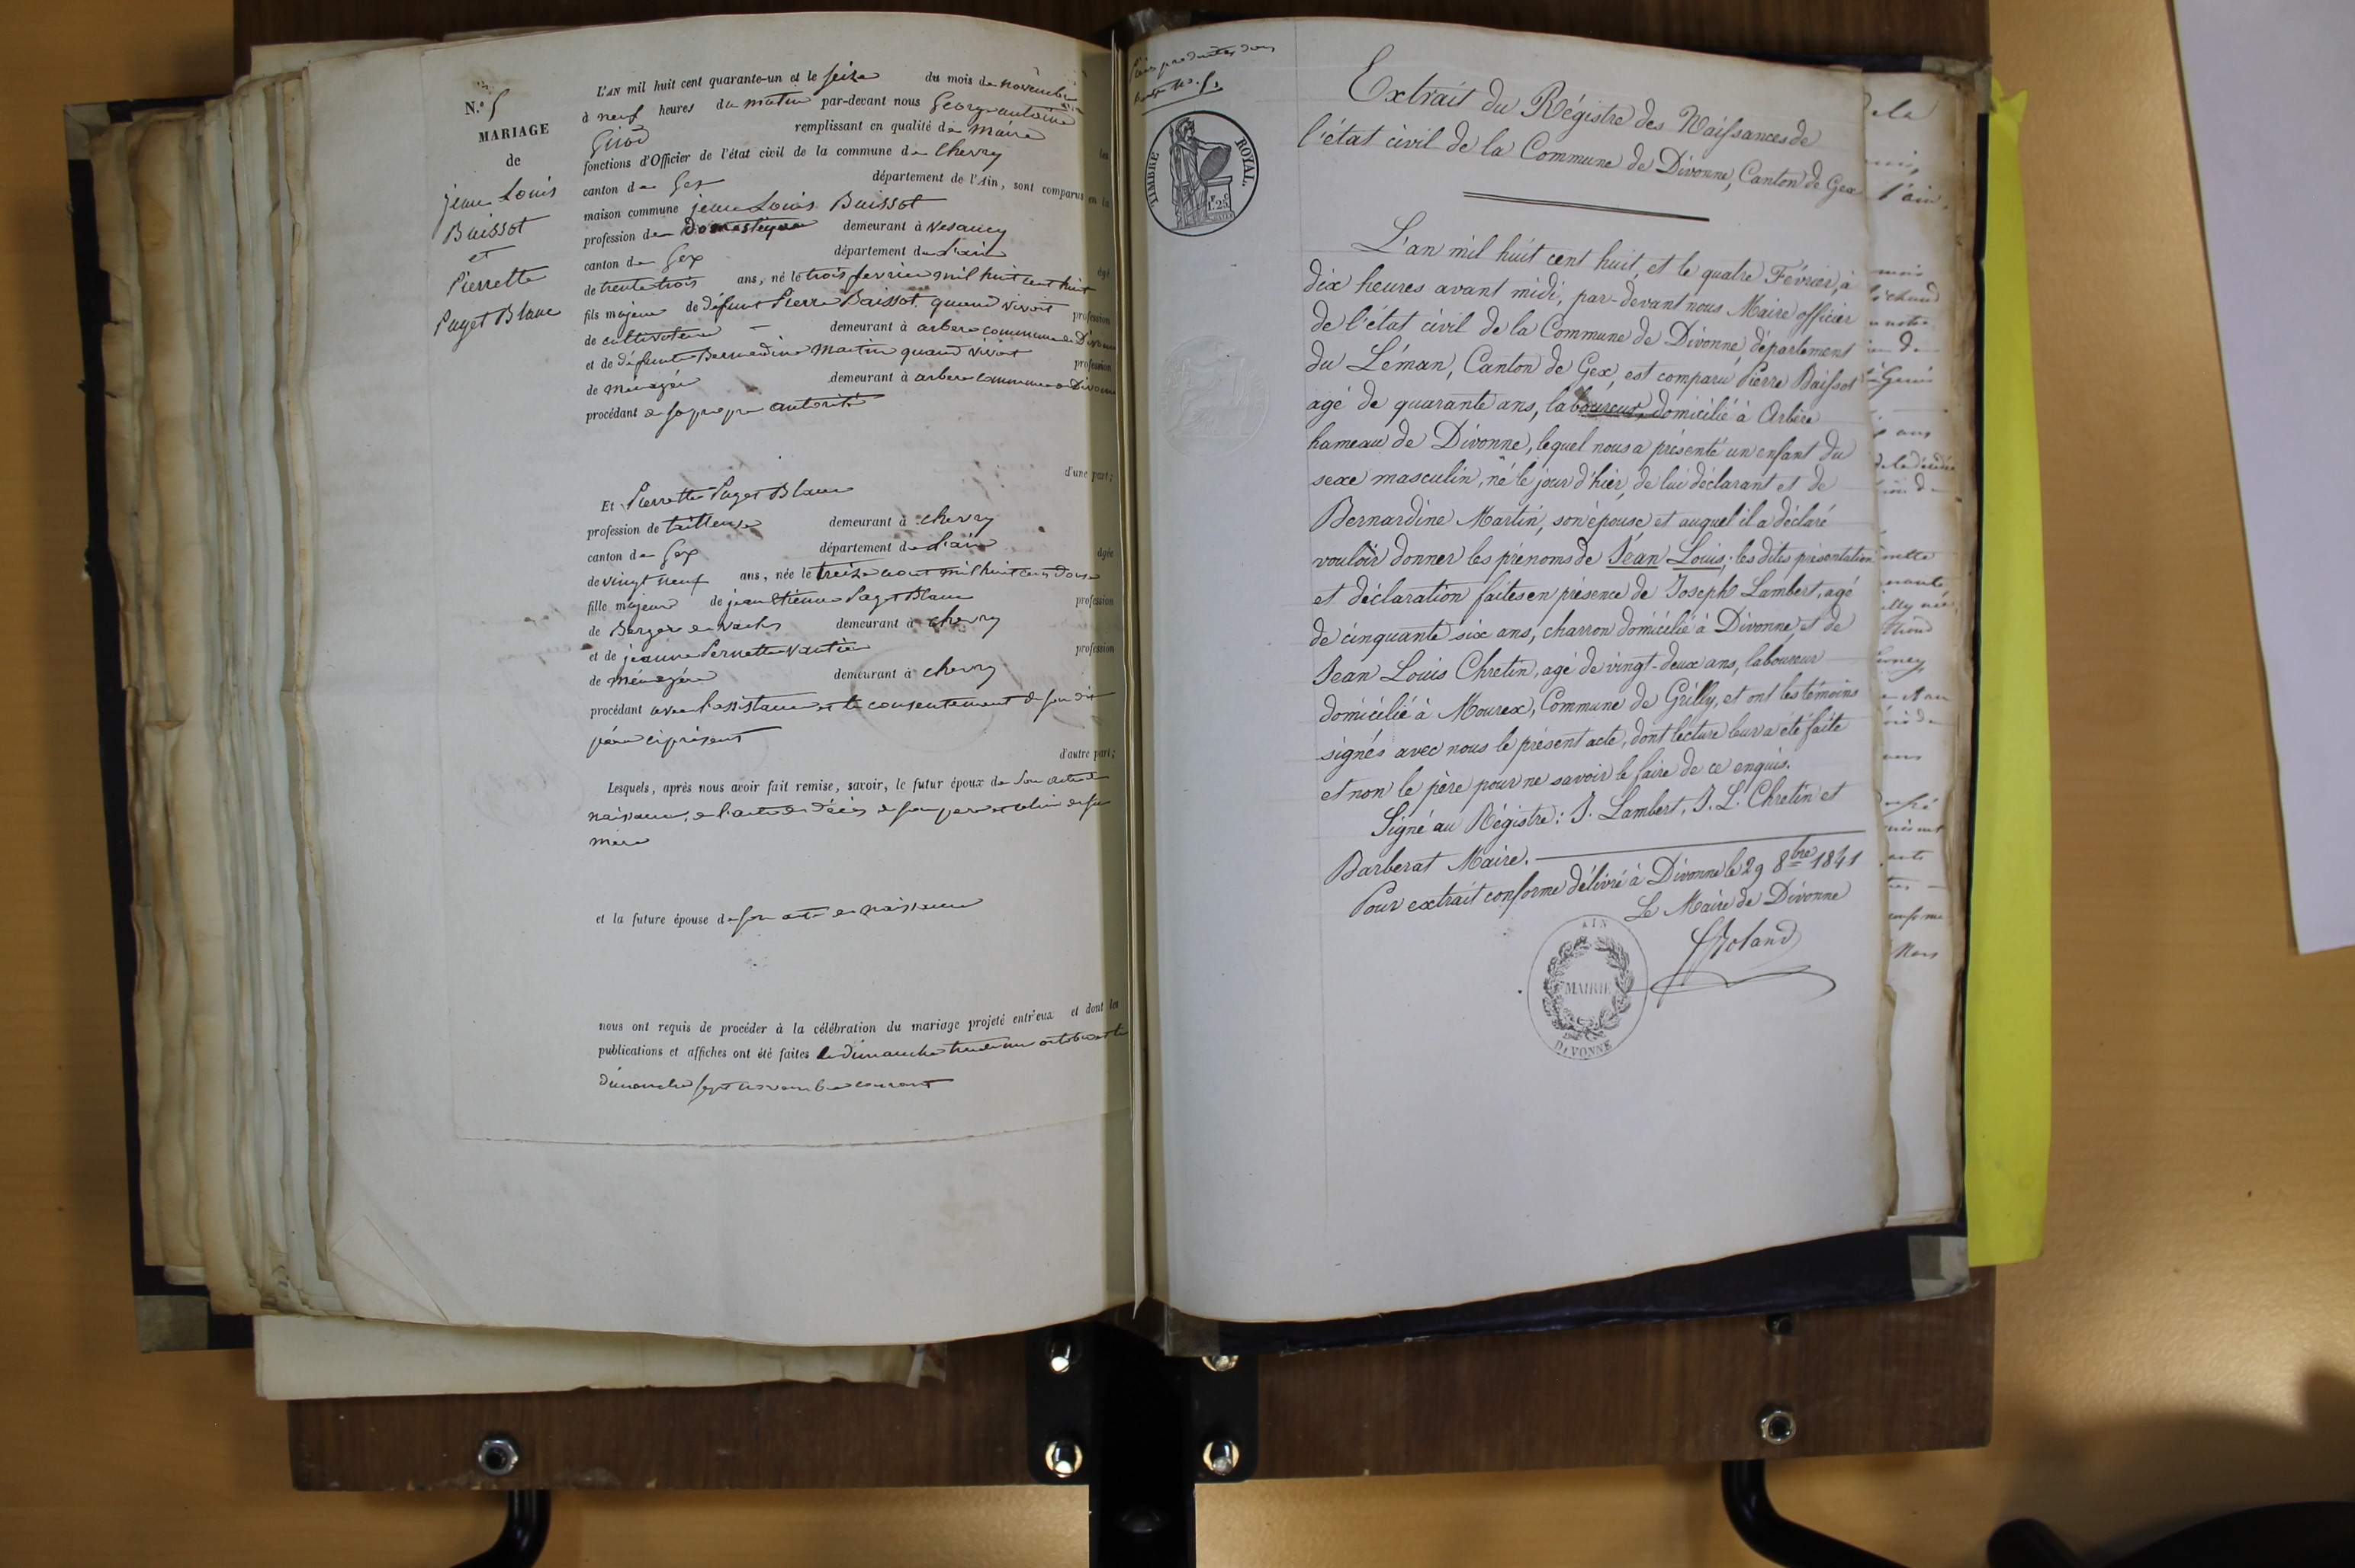 N.º 5
MARIAGE
de
jean Louis
Baissot
et
Pierrette
Paget Blanc
L'AN mil huit cent quarante-un et le seize du mois de novembre
à neuf heures du matin par-devant nous George antoine
Girod remplissant en qualité de Maire les
fonctions d'Officier de l'état civil de la commune de Chevry
canton de Gex département de l'Ain, sont comparus en la
maison commune jean Louis Baissot
profession de Domestique demeurant à Vesancy
canton de Gex département de l'ain âgé
de trente trois ans, né le trois fevrier mil huit cent huit
fils majeur de défunt Pierre Baissot quand vivait profession
de cultivateur demeurant à arbere commune de Divonne
et de défunte Bernardine Martin quand vivait profession
de ménagère demeurant à arbere commune de Divonne
procédant de sa propre autorité
d'une part;
Et Pierrette Paget Blanc
profession de tailleuse demeurant à chevry
canton de Gex département de L'ain âgée
de vingt neuf ans, née le treize aout mil huit cent douze
fille majeure de jean Etienne Paget Blanc profession
de Berger de vaches demeurant à chevry
et de jeanne Pernette Vautier profession
de ménagère demeurant à chevry
procédant avec l'assistance et le consentement de son dit
père ci présent
d'autre part;
Lesquels, après nous avoir fait remise, savoir, le futur époux de son acte de
naissance, de l'acte de décès de son père et celui de sa
mère
et la future épouse de son acte de naissance
nous ont requis de procéder à la célébration du mariage projeté entr'eux et dont les
publications et affiches ont été faites le dimanche trente un octobre et le
dimanche sept novembre courant
Pièces produites sous
N.º 5.
TIMBRE ROYAL
1.25
Extrait du Régistre des Naissances de
l'état civil de la Commune de Divonne, Canton de Gex
L'an mil huit cent huit, et le quatre Février, à
dix heures avant midi, par-devant nous Maire officier
de l'état civil de la Commune de Divonne, département
du Léman, Canton de Gex, est comparu Pierre Baissot
agé de quarante ans, laboureur, domicilié à Arbère
hameau de Divonne, lequel nous a présenté un enfant du
sexe masculin, né le jour d'hier, de lui déclarant et de
Bernardine Martin, son épouse et auquel il a déclaré
vouloir donner les prénoms de Jéan Louis; les dites présentation
et déclaration faites en présence de Joseph Lambert, agé
de cinquante six ans, charron domicilié à Divonne et de
Jean Louis Chretin, agé de vingt-deux ans, laboureur
domicilié à Mourex, Commune de Grilly, et ont les témoins
signés avec nous le présent acte, dont lecture leur a été faite
et non le père pour ne savoir le faire de ce enquis.
Signé au Régistre: J. Lambert, J. L. Chretin et
Barberat Maire.
Pour extrait conforme délivré à Divonne le 29 8bre 1841
Le Maire de Divonne
Roland
AIN
MAIRIE
DIVONNE